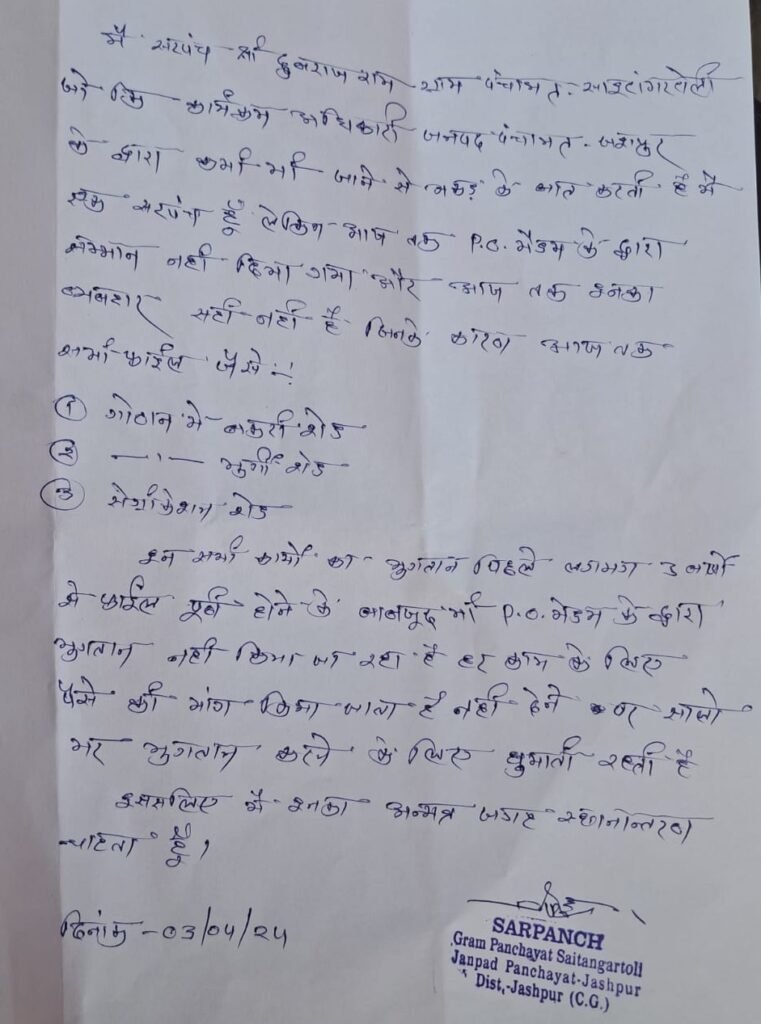 मै सरपंच श्री दुबराज राम ग्राम पंचायत साईटांगरटोली
जो कि कार्यक्रम अधिकारी जनपद पंचायत जशपुर
के द्वारा कभी भी जाने से अकड़ के बात करती है मै
एक सरपंच हूँ लेकिन आज तक P.O. मैडम के द्वारा
सम्मान नहीं दिया गया और आज तक इनका
व्यवहार सही नहीं है जिनके कारण आज तक
सभी फाईल जैसे :-
① गोठान मे बकरी शेड
② —॥— मुर्गी शेड
③ सेग्रीकेशन शेड
इन सभी कार्यो का भुगतान पिछले लगभग 3 वर्षो
से फाईल पूर्ण होने के बावजूद भी P.O. मैडम के द्वारा
भुगतान नहीं किया जा रहा है हर काम के लिए
पैसे की मांग किया जाता है नहीं देने पर सालो
भर भुगतान करने के लिए घुमाती रहती है
इससलिए मै इनका अन्यत्र जगह स्थानान्तरण
चाहता हूँ।
दिनांक - 03/04/24
SARPANCH
Gram Panchayat Saitangartoli
Janpad Panchayat-Jashpur
Dist,-Jashpur (C.G.)